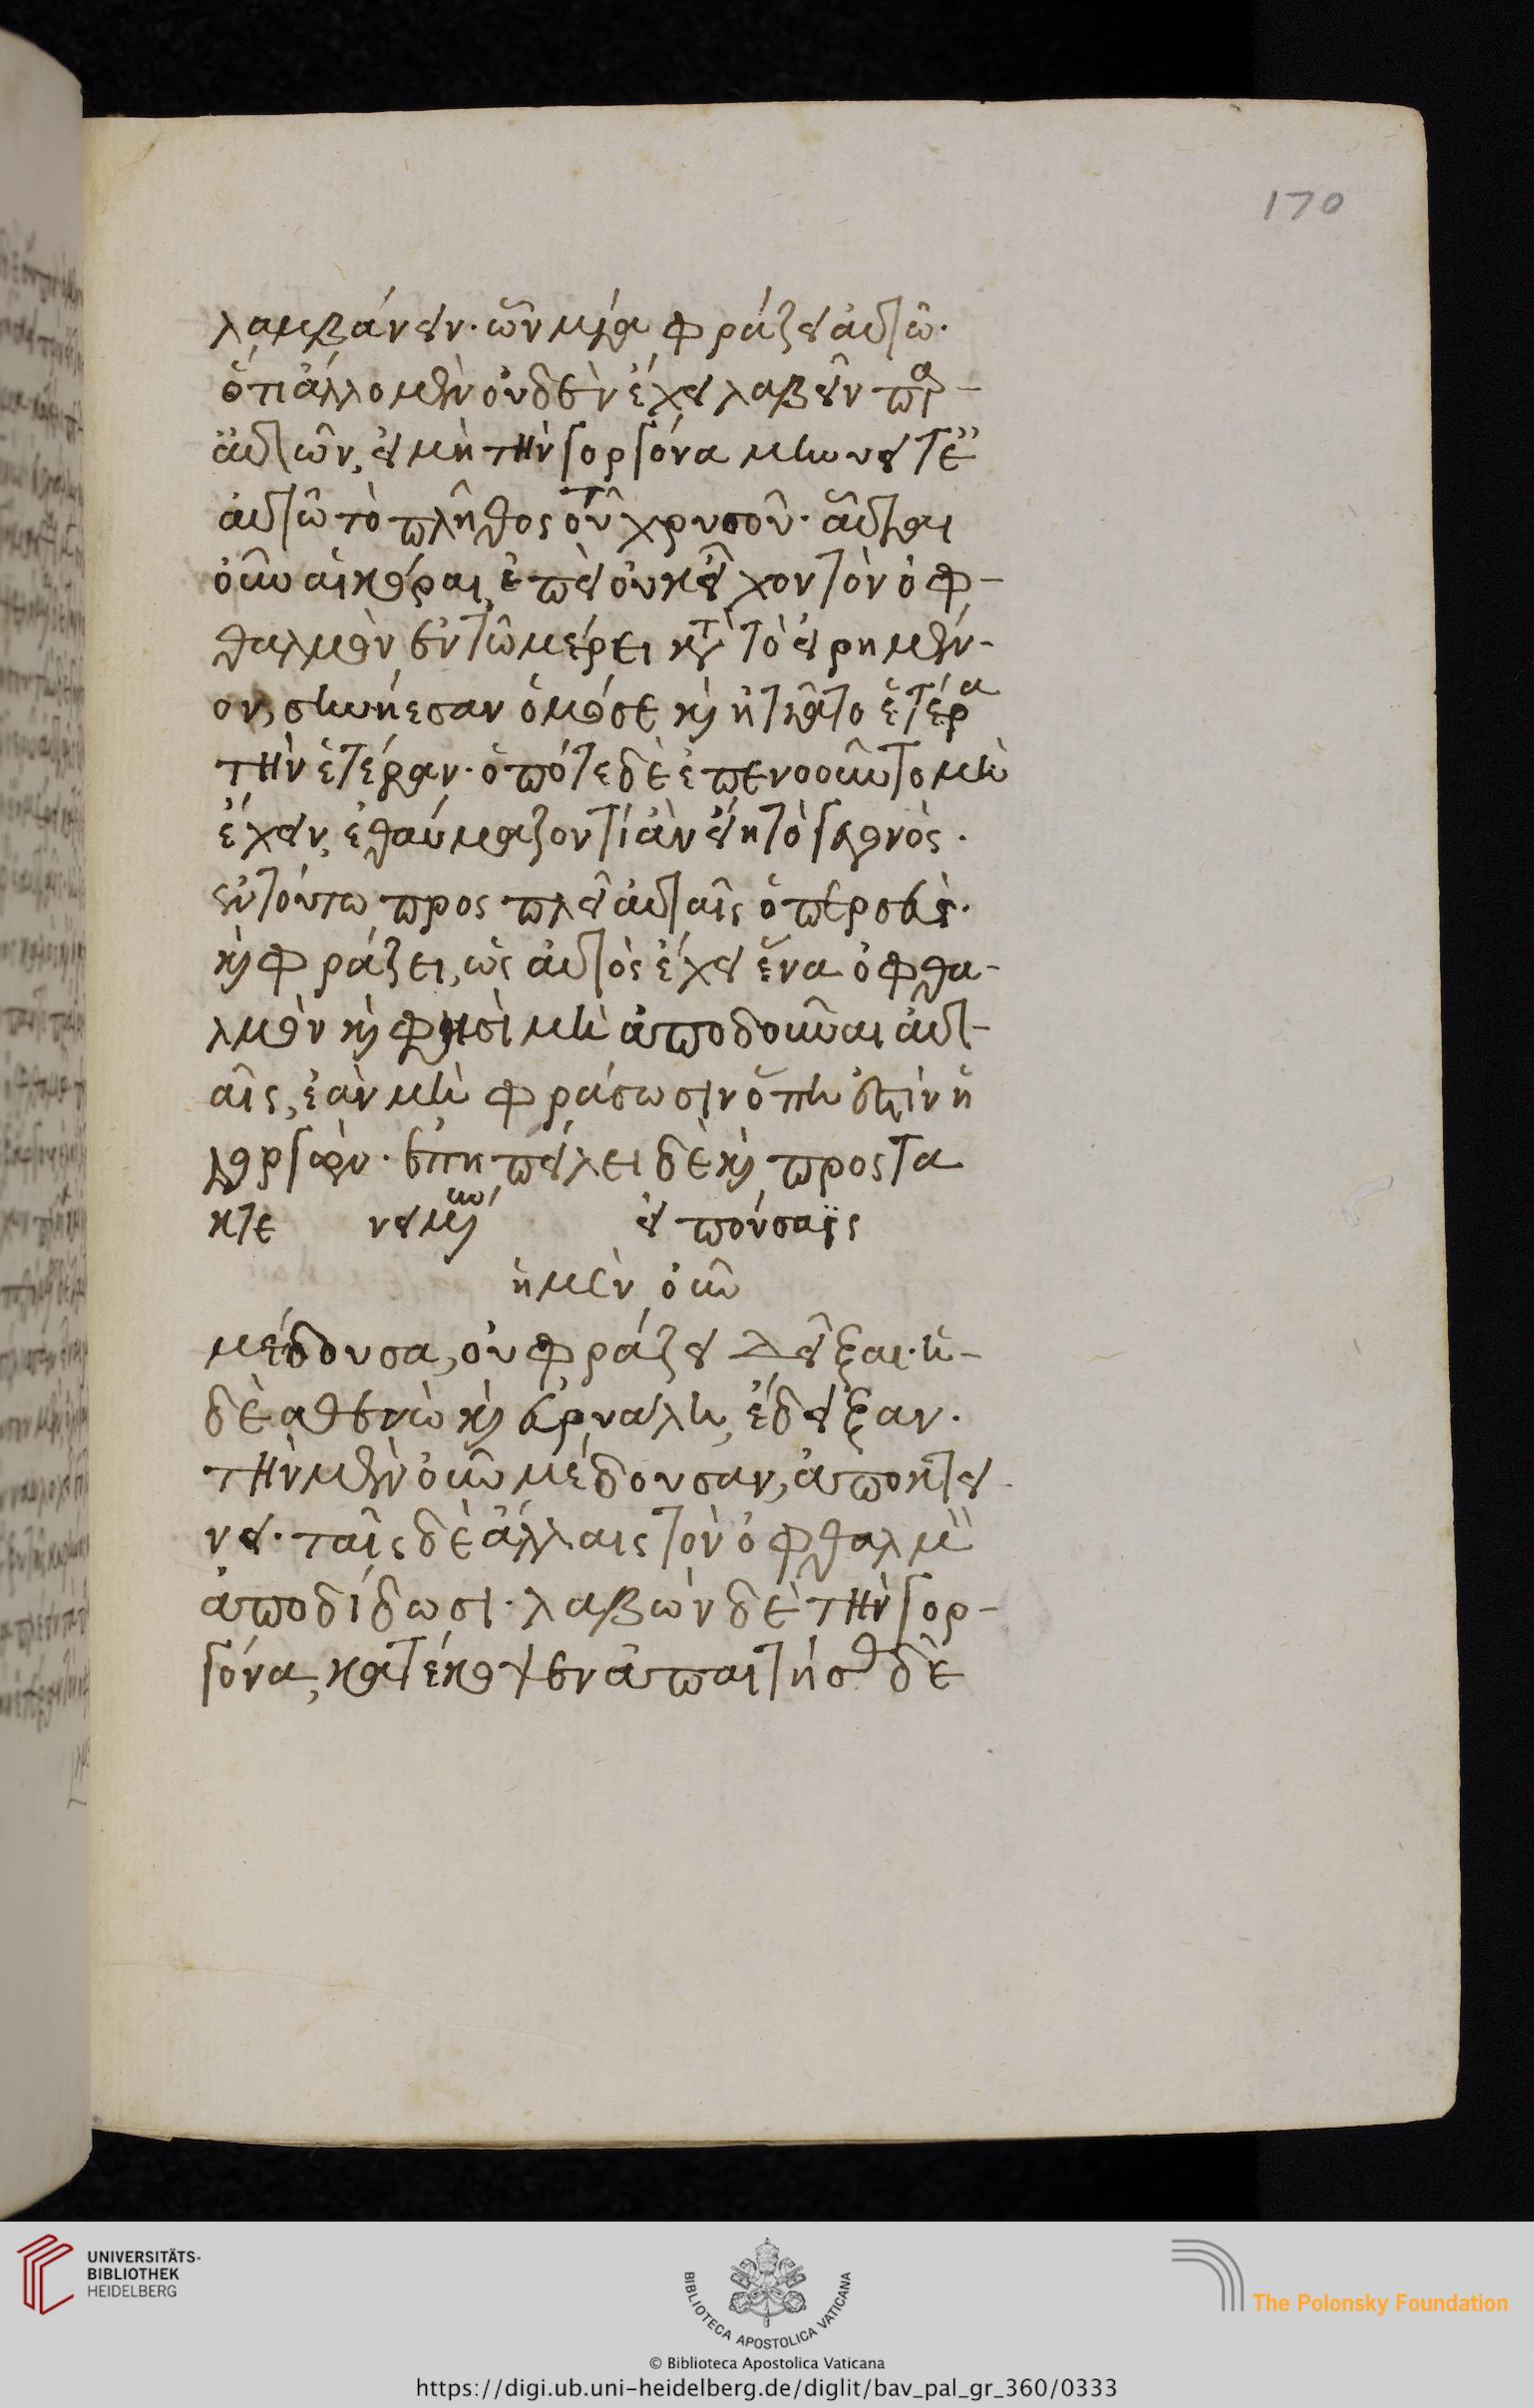 λαμβάνειν· ὧν μία φράζει αὐτῶ·
ὅτι ἄλλο μὲν οὐδὲν ἔχει λαβεῖν παρ-
αὐτῶν, εἰ μὴ τὴν γοργόνα μηνύει τὲ
αὐτῶ τὸ πλῆθος τοῦ χρυσοῦ· αὗται
οὖν αἱ κόραι, ἐπεὶ οὐκ εἶχον τὸν ὀφ-
θαλμὸν ἐν τῶ μέρει κατὰ τὸ εἰρημέν-
ον, συνήεσαν ὁμόσε καὶ ἠτιᾶτο ἑτέρα
τὴν ἑτέραν· ὁπότε δὲ ἐπενοοῦντο μὴ
ἔχειν, ἐθαύμαζον τί ἂν εἴη τὸ γεγονὸς·
ἐν τούτω προς πλεῖ αὐταῖς ὁ περσεὺς·
καὶ φράζει, ὡς αὐτὸς ἔχει ἕνα ὀφθα-
λμὸν καὶ φησὶ μὴ ἀποδοῦναι αὐτ-
αῖς, ἐὰν μὴ φράσωσιν ὅπη ἐστὶν ἡ
γοργὼν· ἐπηπείλει δὲ καὶ προς τα
κτε νειν μὴ εἰπούσαις
ἡ μὲν οὖν
μέδουσα, οὐ φράζει δεῖξαι· ἡ-
δὲ αθενὼ καὶ εὐρυάλη, ἔδειξαν·
τὴν μὲν οὖν μέδουσαν, ἀποκτεί-
νει· ταῖς δὲ ἄλλαις τὸν ὀφθαλμὸν
ἀποδίδωσι· λαβὼν δὲ τὴν γορ-
γόνα, κατέκοψεν ἀπαιτήσας δὲ
170
UNIVERSITÄTS-
BIBLIOTHEK
HEIDELBERG
BIBLIOTECA APOSTOLICA VATICANA
The Polonsky Foundation
© Biblioteca Apostolica Vaticana
https://digi.ub.uni-heidelberg.de/diglit/bav_pal_gr_360/0333